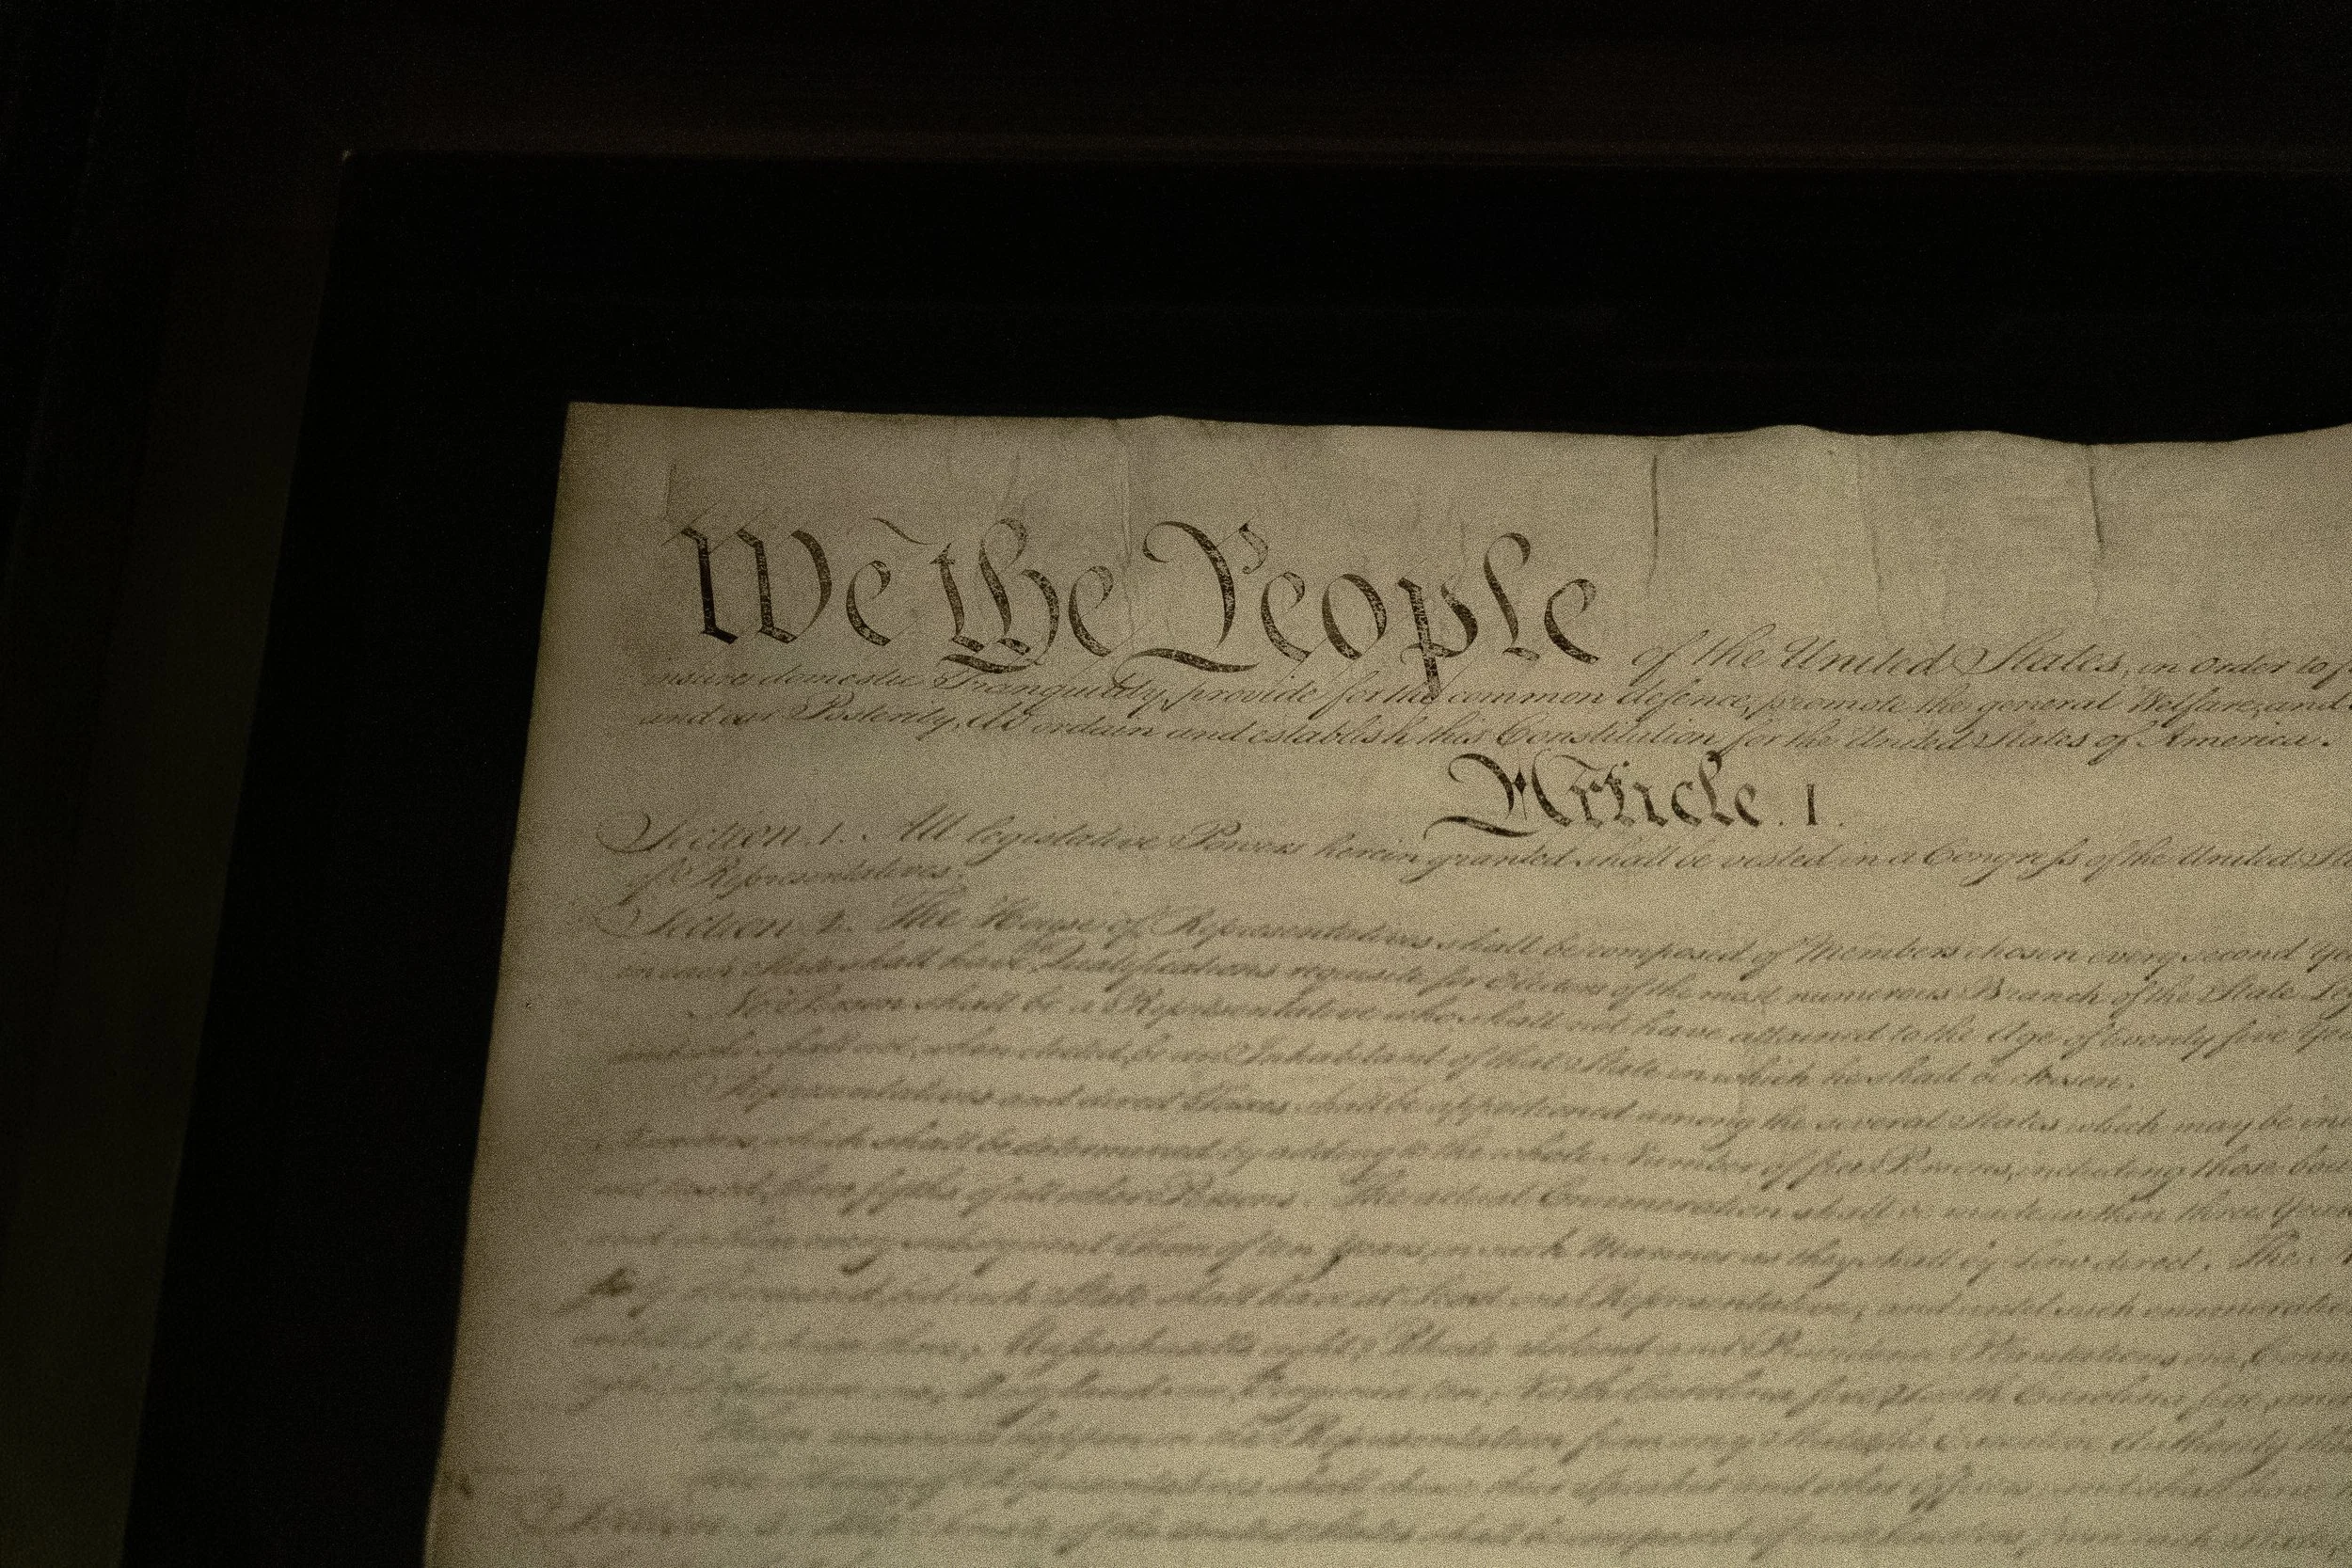 We the People of the United States, in Order to
insure domestic Tranquility, provide for the common defence, promote the general Welfare, and
and our Posterity, do ordain and establish this Constitution for the United States of America.
Article. I.
Section. 1. All legislative Powers herein granted shall be vested in a Congress of the United
of Representatives.
Section. 2. The House of Representatives shall be composed of Members chosen every second
in each State shall have Qualifications requisite for Electors of the most numerous Branch of the State
No Person shall be a Representative who shall not have attained to the Age of twenty five
and who shall not, when elected, be an Inhabitant of that State in which he shall be chosen.
Representatives and direct Taxes shall be apportioned among the several States which may be
Numbers, which shall be determined by adding to the whole Number of free Persons, including those
and not taxed, three fifths of all other Persons. The actual Enumeration shall be made within three
and within every subsequent Term of ten Years, in such Manner as they shall by Law direct. The
but each State shall have at Least one Representative; and until such
entitled to chuse three, Massachusetts eight, Rhode Island and Providence Plantations one,
one, Maryland six, Virginia ten, North Carolina five, South Carolina five,
vacancies happen in the Representation from any State, the Executive Authority
shall chuse their Speaker and other Officers;
of the United States shall be composed of two